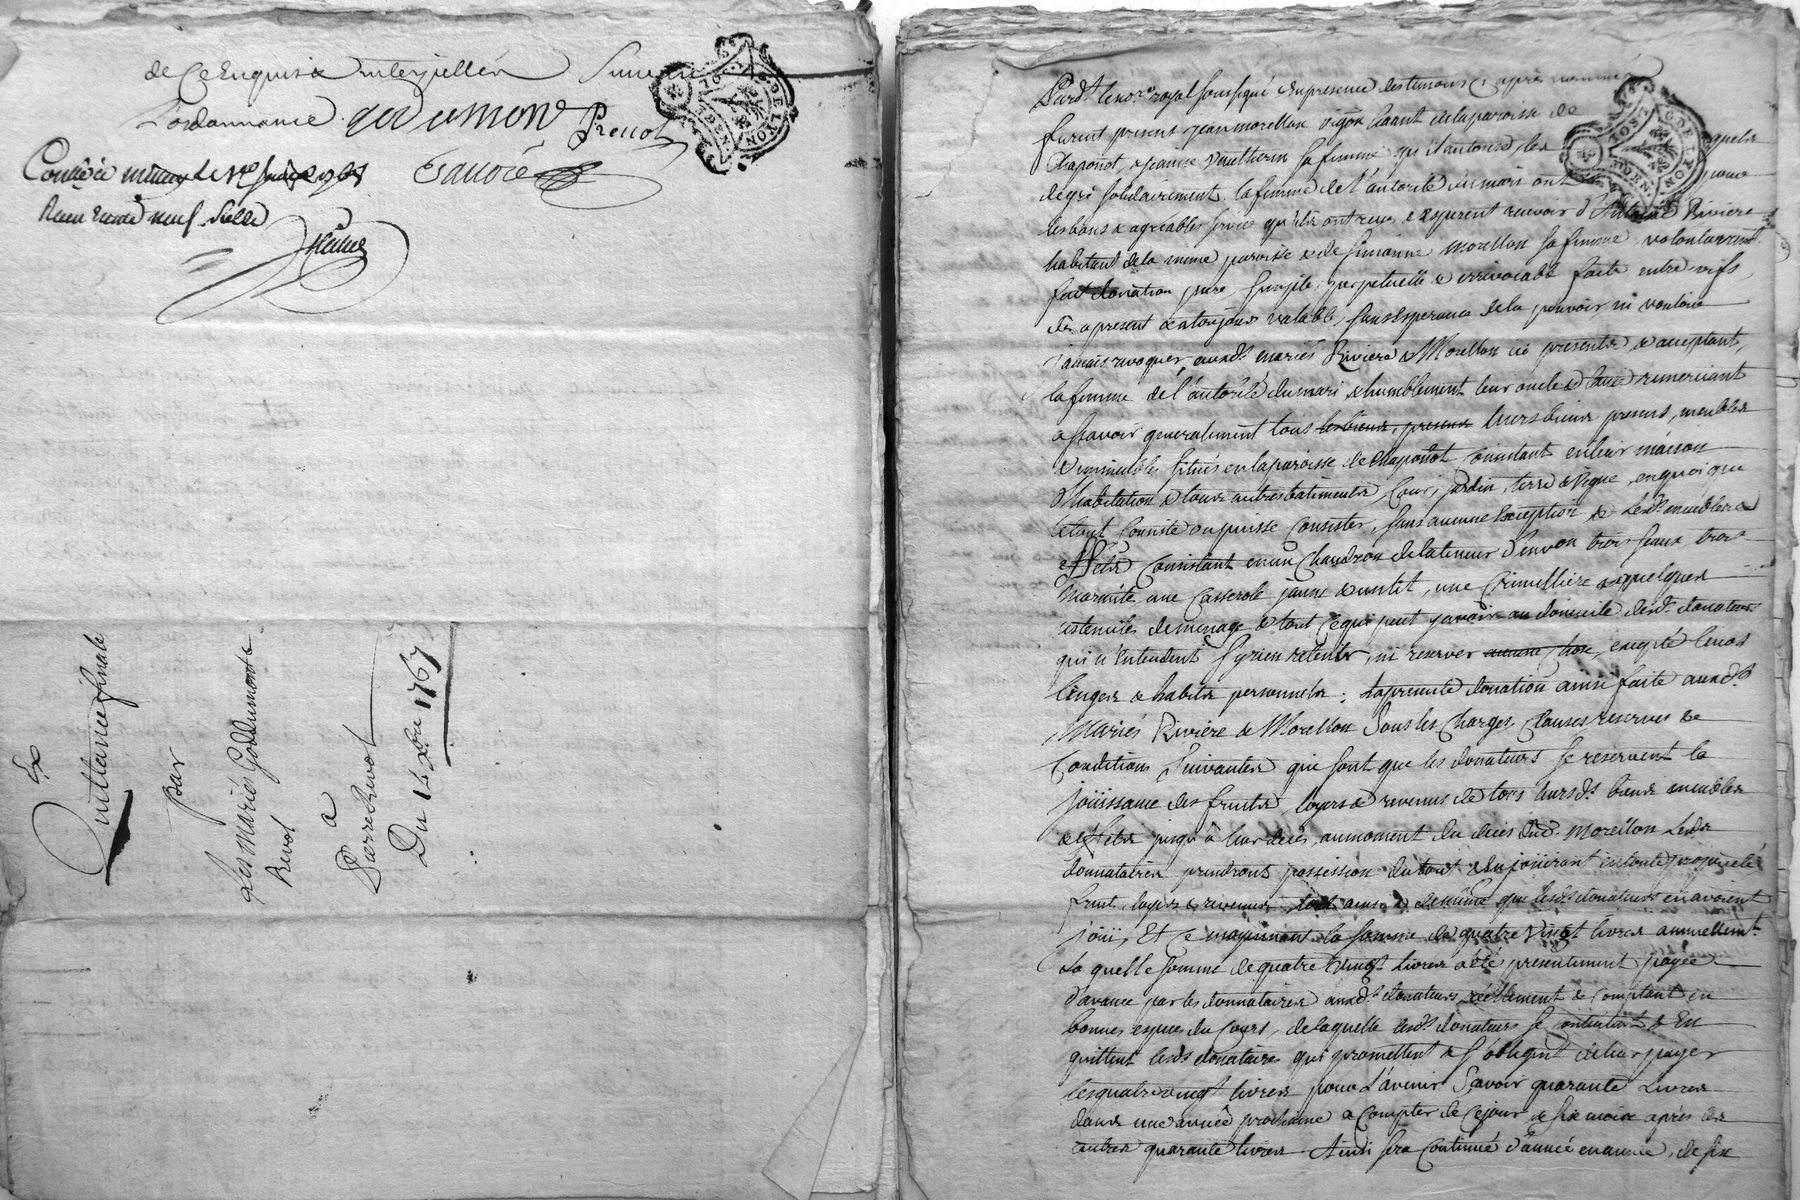 de Ce Enquis & interpellés suivant
L'ordonnance. godumone Prenot
Contrôlé 1767
Reçu neuf Sols
Ex
Quittance finale
Par
Les mariés Goddumont &
Revol
A
Pierre Revol
Du 14 xbre 1767
Pard.t le no.re royal soussigné En presence des temoins cy après nommés
furent presens Jean morellon vigñ habitant de la paroisse de
Chaponot, & jeanne Vautherin sa femme qu'il autorise, lesquels
de gré solidairement la femme de l'autorité du mari ont pour
les bons & agréables services qu'ils ont reçus & esperent recevoir d'Antoine Riviere
habitant de la meme paroisse & de Simonne morellon sa femme, volontairemt
fait donation pure, simple, perpetuelle & irrevocable faite entre vifs,
dès apresent & a toujours valable, sans esperance de la pouvoir ni vouloir
jamais revoquer, auxds mariés Riviere & Morellon ici presents & acceptants,
la femme de l'autorité du mari & humblement leur oncle & tante remerciant
asavoir generalement tous les biens, presens leurs biens presens, meubles
& immeubles situés en la paroisse de chaponot consistant en leur maison
d'habitation & tous autres batiments, Cour, jardin, terre & vigne, en quoi que
le tout consiste ou puisse consister, sans aucune exception & lesds meubles &
effets consistant en un Chaudron de la teneur d'environ trois seaux trois
marmite une Casserole jaune & un lit, une Cremilliere & quelques
ustenciles de menage & tout ce qui peut y avoir au domicile desds donateurs
qui n'entendent s'y rien retenir, ni reserver aucune chose, excepté leurs
linges & habits personnels; la presente donation ainsi faite auxds
Mariés Riviere & Morellon Sous les Charges, Clauses reserves &
Conditions Suivantes qui sont que les donateurs se reservent la
joüissance des fruits loyers & revenus de tous leursds biens meubles
& effets jusqu'à leur decès, au moment du decès dud. morellon lesds
donnataires prendront possession du tout & en joüiront en toute proprieté
fruits, loyers & revenus tout ainsi & de même que lesds donateurs en avoient
joüi, Et ce moyennant la somme de quatre Vingt livres annuellemt
La quelle somme de quatre vingt livres a été presentement payée
d'avance par les donnataires auxds donateurs, réellement & comptant en
bonnes especes du Cours, de laquelle lesds donateurs se contentent & En
quittent lesds donataires qui promettent & s'obligent de leur payer
les quatre vingt livres pour l'avenir Savoir quarante Livres
dans une année prochaine a Compter de Ce jour & six mois après les
autres quarante livres Ainsi sera continué d'année en année, de six